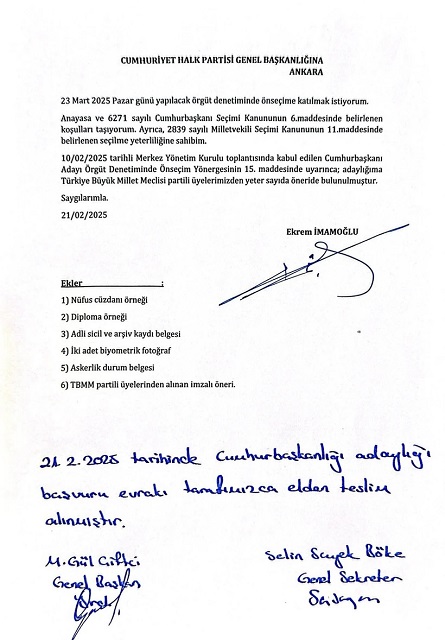 CUMHURİYET HALK PARTİSİ GENEL BAŞKANLIĞINA
ANKARA
23 Mart 2025 Pazar günü yapılacak örgüt denetiminde önseçime katılmak istiyorum.
Anayasa ve 6271 sayılı Cumhurbaşkanı Seçimi Kanununun 6.maddesinde belirlenen
koşulları taşıyorum. Ayrıca, 2839 sayılı Milletvekili Seçimi Kanununun 11.maddesinde
belirlenen seçilme yeterliliğine sahibim.
10/02/2025 tarihli Merkez Yönetim Kurulu toplantısında kabul edilen Cumhurbaşkanı
Adayı Örgüt Denetiminde Önseçim Yönergesinin 15. maddesinde uyarınca; adaylığıma
Türkiye Büyük Millet Meclisi partili üyelerimizden yeter sayıda öneride bulunulmuştur.
Saygılarımla.
21/02/2025
Ekrem İMAMOĞLU
Ekler :
1) Nüfus cüzdanı örneği
2) Diploma örneği
3) Adli sicil ve arşiv kaydı belgesi
4) İki adet biyometrik fotoğraf
5) Askerlik durum belgesi
6) TBMM partili üyelerinden alınan imzalı öneri.
21.2.2025 tarihinde Cumhurbaşkanlığı adaylığı
başvuru evrakı tarafımızca elden teslim
alınmıştır.
M. Gül Çiftci
Genel Başkan
Selin Sayek Böke
Genel Sekreter